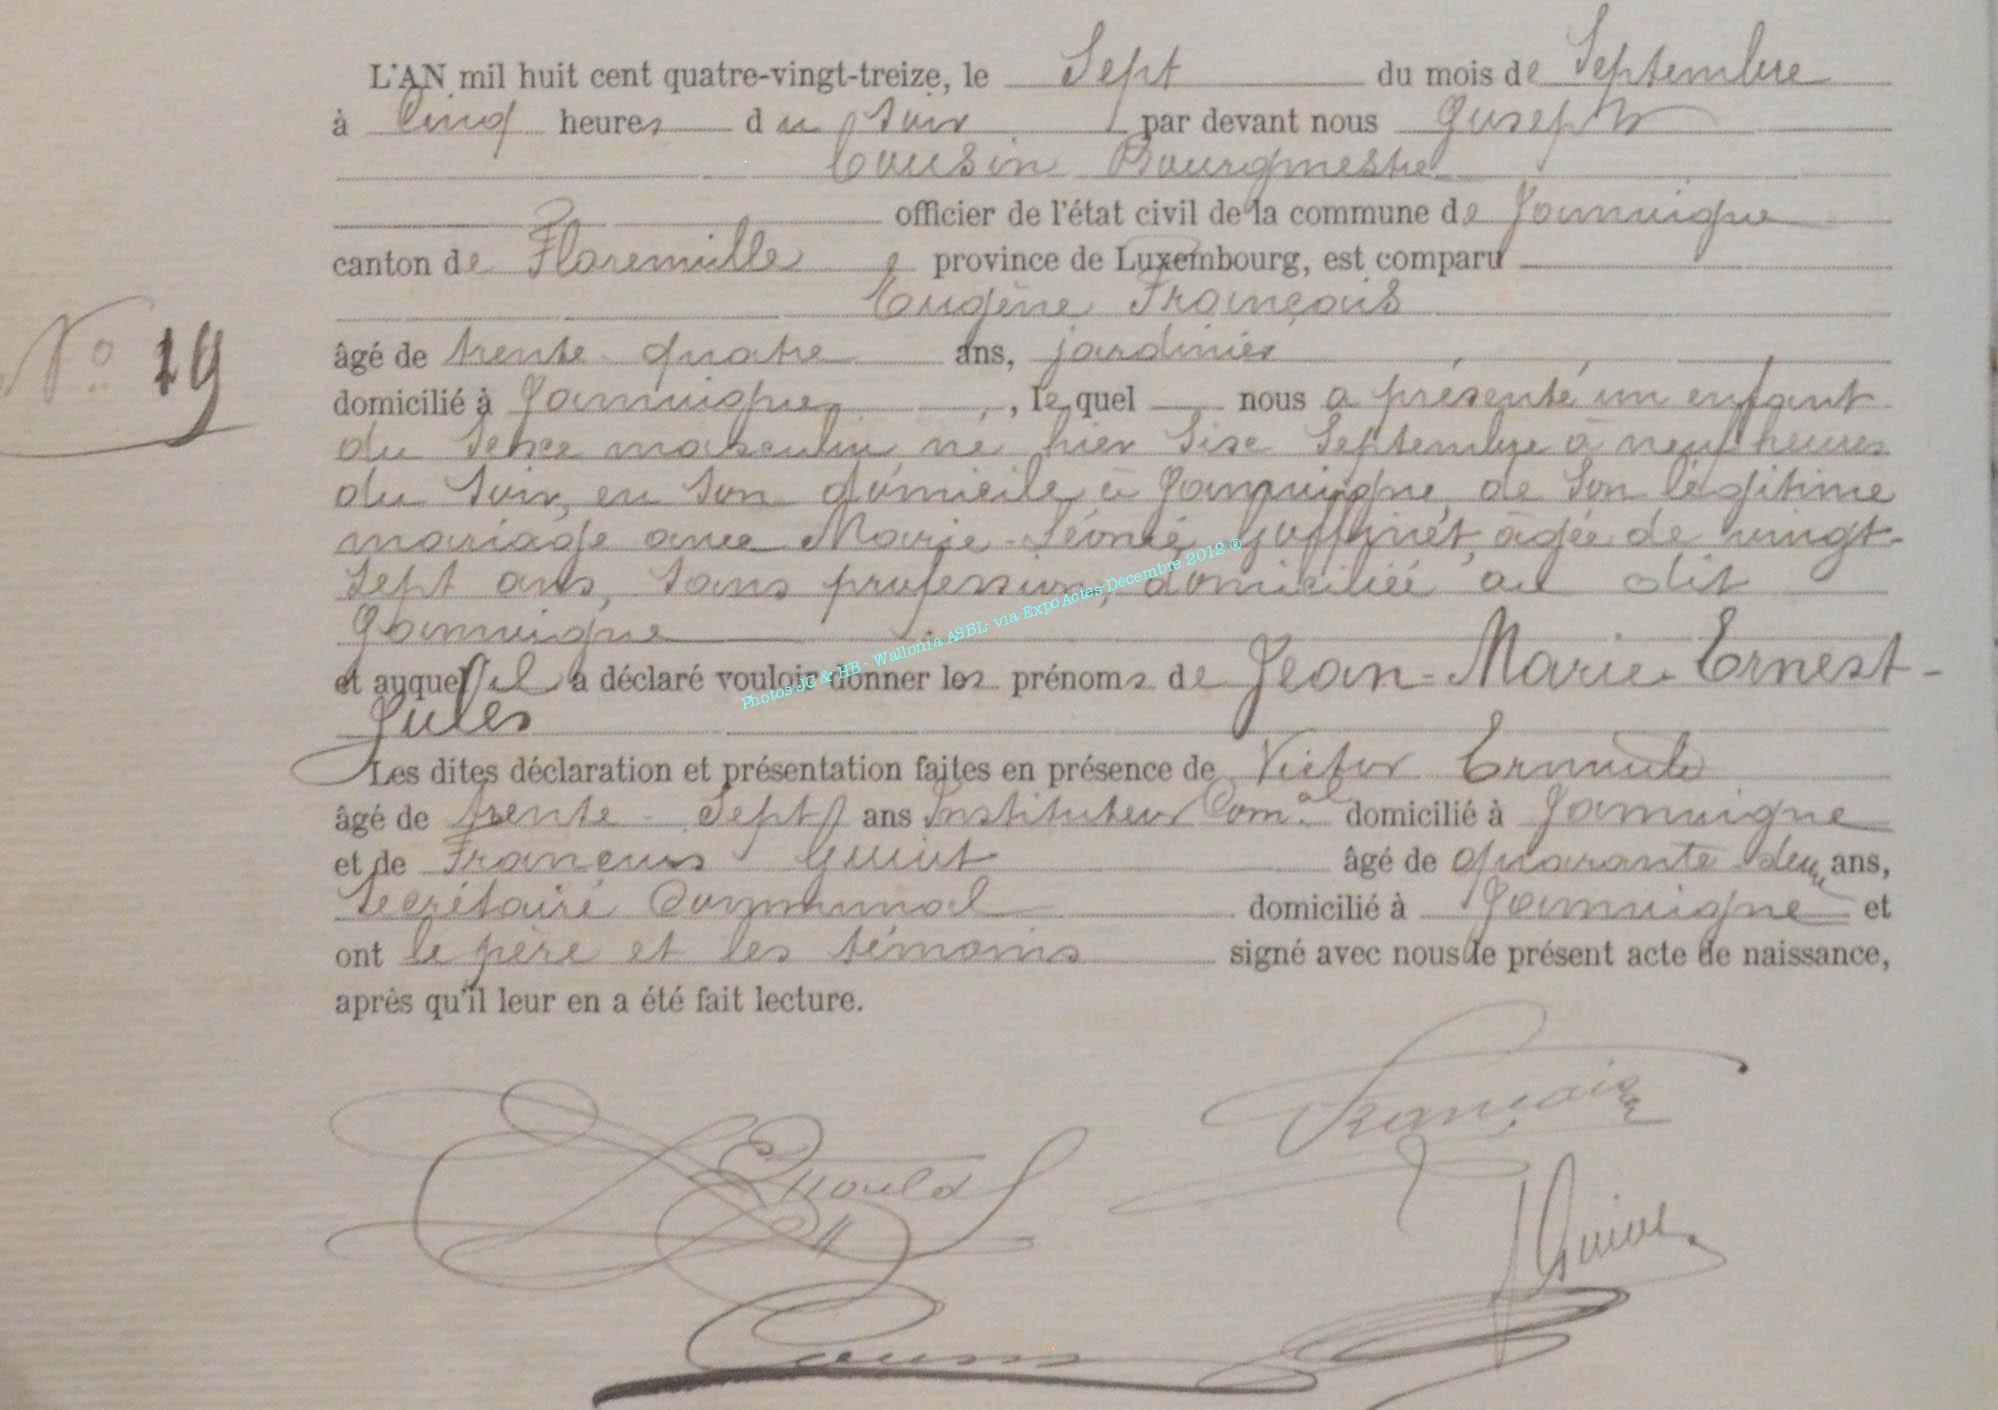 L'AN mil huit cent quatre-vingt-treize, le Sept du mois de Septembre
à Cinq heures du soir par devant nous Joseph
Cousin Bourgmestre
officier de l'état civil de la commune de Jamoigne
canton de Florenville province de Luxembourg, est comparu
Eugène François
N° 19
âgé de trente-quatre ans, jardinier
domicilié à Jamoigne, lequel nous a présenté un enfant
du sexe masculin, né hier Six Septembre à neuf heures
du soir, en son domicile à Jamoigne, de son légitime
mariage avec Marie-Léonie Goffinet, âgée de vingt-
sept ans, sans profession, domiciliée au dit
Jamoigne
et auquel il a déclaré vouloir donner les prénoms de Jean-Marie-Ernest-
Jules
Les dites déclaration et présentation faites en présence de Victor
âgé de trente-Sept ans Instituteur Com.al domicilié à Jamoigne
et de François âgé de quarante-deux ans,
Secrétaire Communal domicilié à Jamoigne et
ont le père et les témoins signé avec nous le présent acte de naissance,
après qu'il leur en a été fait lecture.
Photos JC & HB - Wallonia ASBL- via ExpoActes Décembre 2012 ®
François